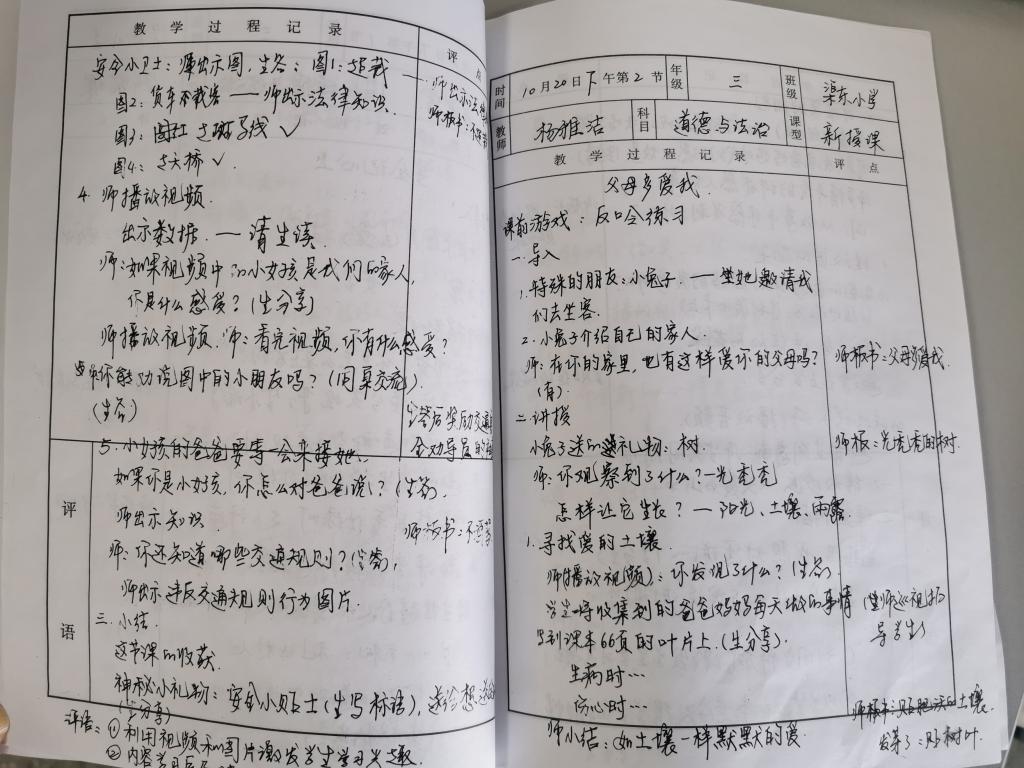 教学过程记录
评点
安全小卫士：师出示图，生答：图1：超载
图2：货车不载客——师出示法律知识.
图3：图红 过斑马线 ✓
图4：过大桥 ✓.
师出示法
师板书：不
4. 师播放视频.
出示数据.—请生读.
师：如果视频中的小女孩是我们的家人,
你是什么感受？(生分享)
师播放视频. 师：看完视频，你有什么感受？
师：你能劝说图中的小朋友吗？(同桌交流).
(生答)
生答后奖励交通
全劝导员的
5. 小女孩的爸爸要等一会来接她、
如果你是小女孩，你怎么对爸爸说？(生答).
师出示知识
师：你还知道哪些交通规则？(生答).
师出示违反交通规则行为图片.
三.小结.
这节课的收获.
神秘小礼物：安全小贴士(生写标语)，送给想送
(生分享)
评语
评语：①利用视频和图片激发学生学习兴趣.
②内容
时间
10月20日下午第2节
年级
三
班级
渠东小学
教师
杨雅洁
科目
道德与法治
课型
新授课
教学过程记录
评点
父母多爱我
课前游戏：反口令练习
一.导入
1.特殊的朋友：小兔子.——她邀请我
们去坐客.
2.小兔子介绍自己的家人.
师：在你的家里，也有这样爱你的父母吗？
师板书：父母多爱我.
(有).
二.讲授
小兔子送的礼物：树
师板：光秃秃的树.
师：你观察到了什么？—光秃秃
怎样让它生长？—阳光、土壤、雨露.
1.寻找爱的土壤.
师播放视频)：你发现了什么？(生答).
学生将收集到的爸爸妈妈每天做的事情
写到课本66页的叶片上.(生分享).
(师巡视指
导学生)
生病时…
伤心时…
师小结：如土壤一样默默的爱.
师板书：贴肥沃的土壤.
发芽了：贴树叶.